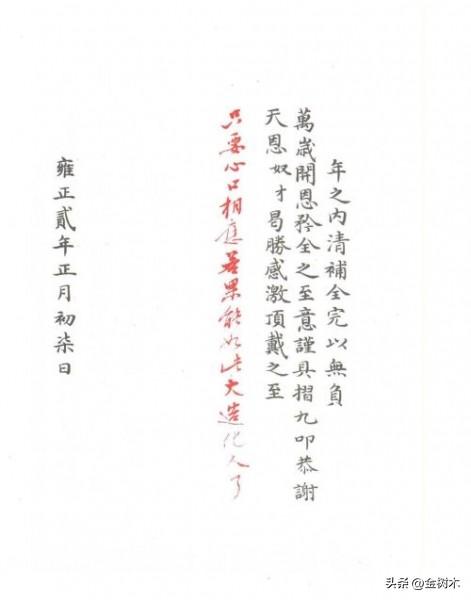 年之內清補全完以無負
萬歲開恩矜全之至意謹具摺九叩恭謝
天恩奴才曷勝感激頂戴之至
只要心口相應若果能如此大造化人了
雍正貳年正月初柒日
头条 @金树木